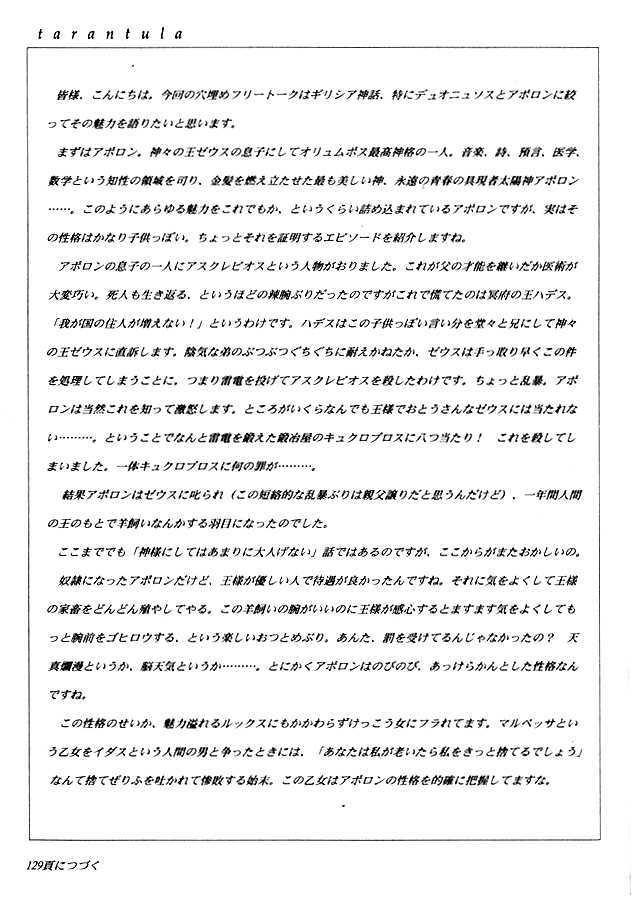 tarantula
皆様、こんにちは。今回の穴埋めフリートークはギリシア神話、特にデュオニュソスとアポロンに絞
ってその魅力を語りたいと思います。
まずはアポロン。神々の王ゼウスの息子にしてオリュムポス最高神格の一人。音楽、詩、預言、医学、
数学という知性の領域を司り、金髪を燃え立たせた最も美しい神、永遠の青春の具現者太陽神アポロン
……。このようにあらゆる魅力をこれでもか、というくらい詰め込まれているアポロンですが、実はそ
の性格はかなり子供っぽい。ちょっとそれを証明するエピソードを紹介しますね。
アポロンの息子の一人にアスクレピオスという人物がおりました。これが父の才能を継いだか医術が
大変巧い。死人も生き返る、というほどの辣腕ぶりだったのですがこれで慌てたのは冥府の王ハデス。
「我が国の住人が増えない！」というわけです。ハデスはこの子供っぽい言い分を堂々と兄にして神々
の王ゼウスに直訴します。陰気な弟のぶつぶつぐちぐちに耐えかねたか、ゼウスは手っ取り早くこの件
を処理してしまうことに。つまり雷電を投げてアスクレピオスを殺したわけです。ちょっと乱暴。アポ
ロンは当然これを知って激怒します。ところがいくらなんでも王様でおとうさんなゼウスには当たれな
い………。ということでなんと雷電を鍛えた鍛冶屋のキュクロプロスに八つ当たり！　これを殺してし
まいました。一体キュクロプロスに何の罪が………。
結果アポロンはゼウスに叱られ（この短絡的な乱暴ぶりは親父譲りだと思うんだけど）、一年間人間
の王のもとで羊飼いなんかする羽目になったのでした。
ここまででも「神様にしてはあまりに大人げない」話ではあるのですが、ここからがまたおかしいの。
奴隷になったアポロンだけど、王様が優しい人で待遇が良かったんですね。それに気をよくして王様
の家畜をどんどん殖やしてやる。この羊飼いの腕がいいのに王様が感心するとますます気をよくしても
っと腕前をゴヒロウする、という楽しいおつとめぶり。あんた、罰を受けてるんじゃなかったの？　天
真爛漫というか、脳天気というか………。とにかくアポロンはのびのび、あっけらかんとした性格なん
ですね。
この性格のせいか、魅力溢れるルックスにもかかわらずけっこう女にフラれてます。マルペッサとい
う乙女をイダスという人間の男と争ったときには、「あなたは私が老いたら私をきっと捨てるでしょう」
なんて捨てぜりふを吐かれて惨敗する始末。この乙女はアポロンの性格を的確に把握してますな。
129頁につづく